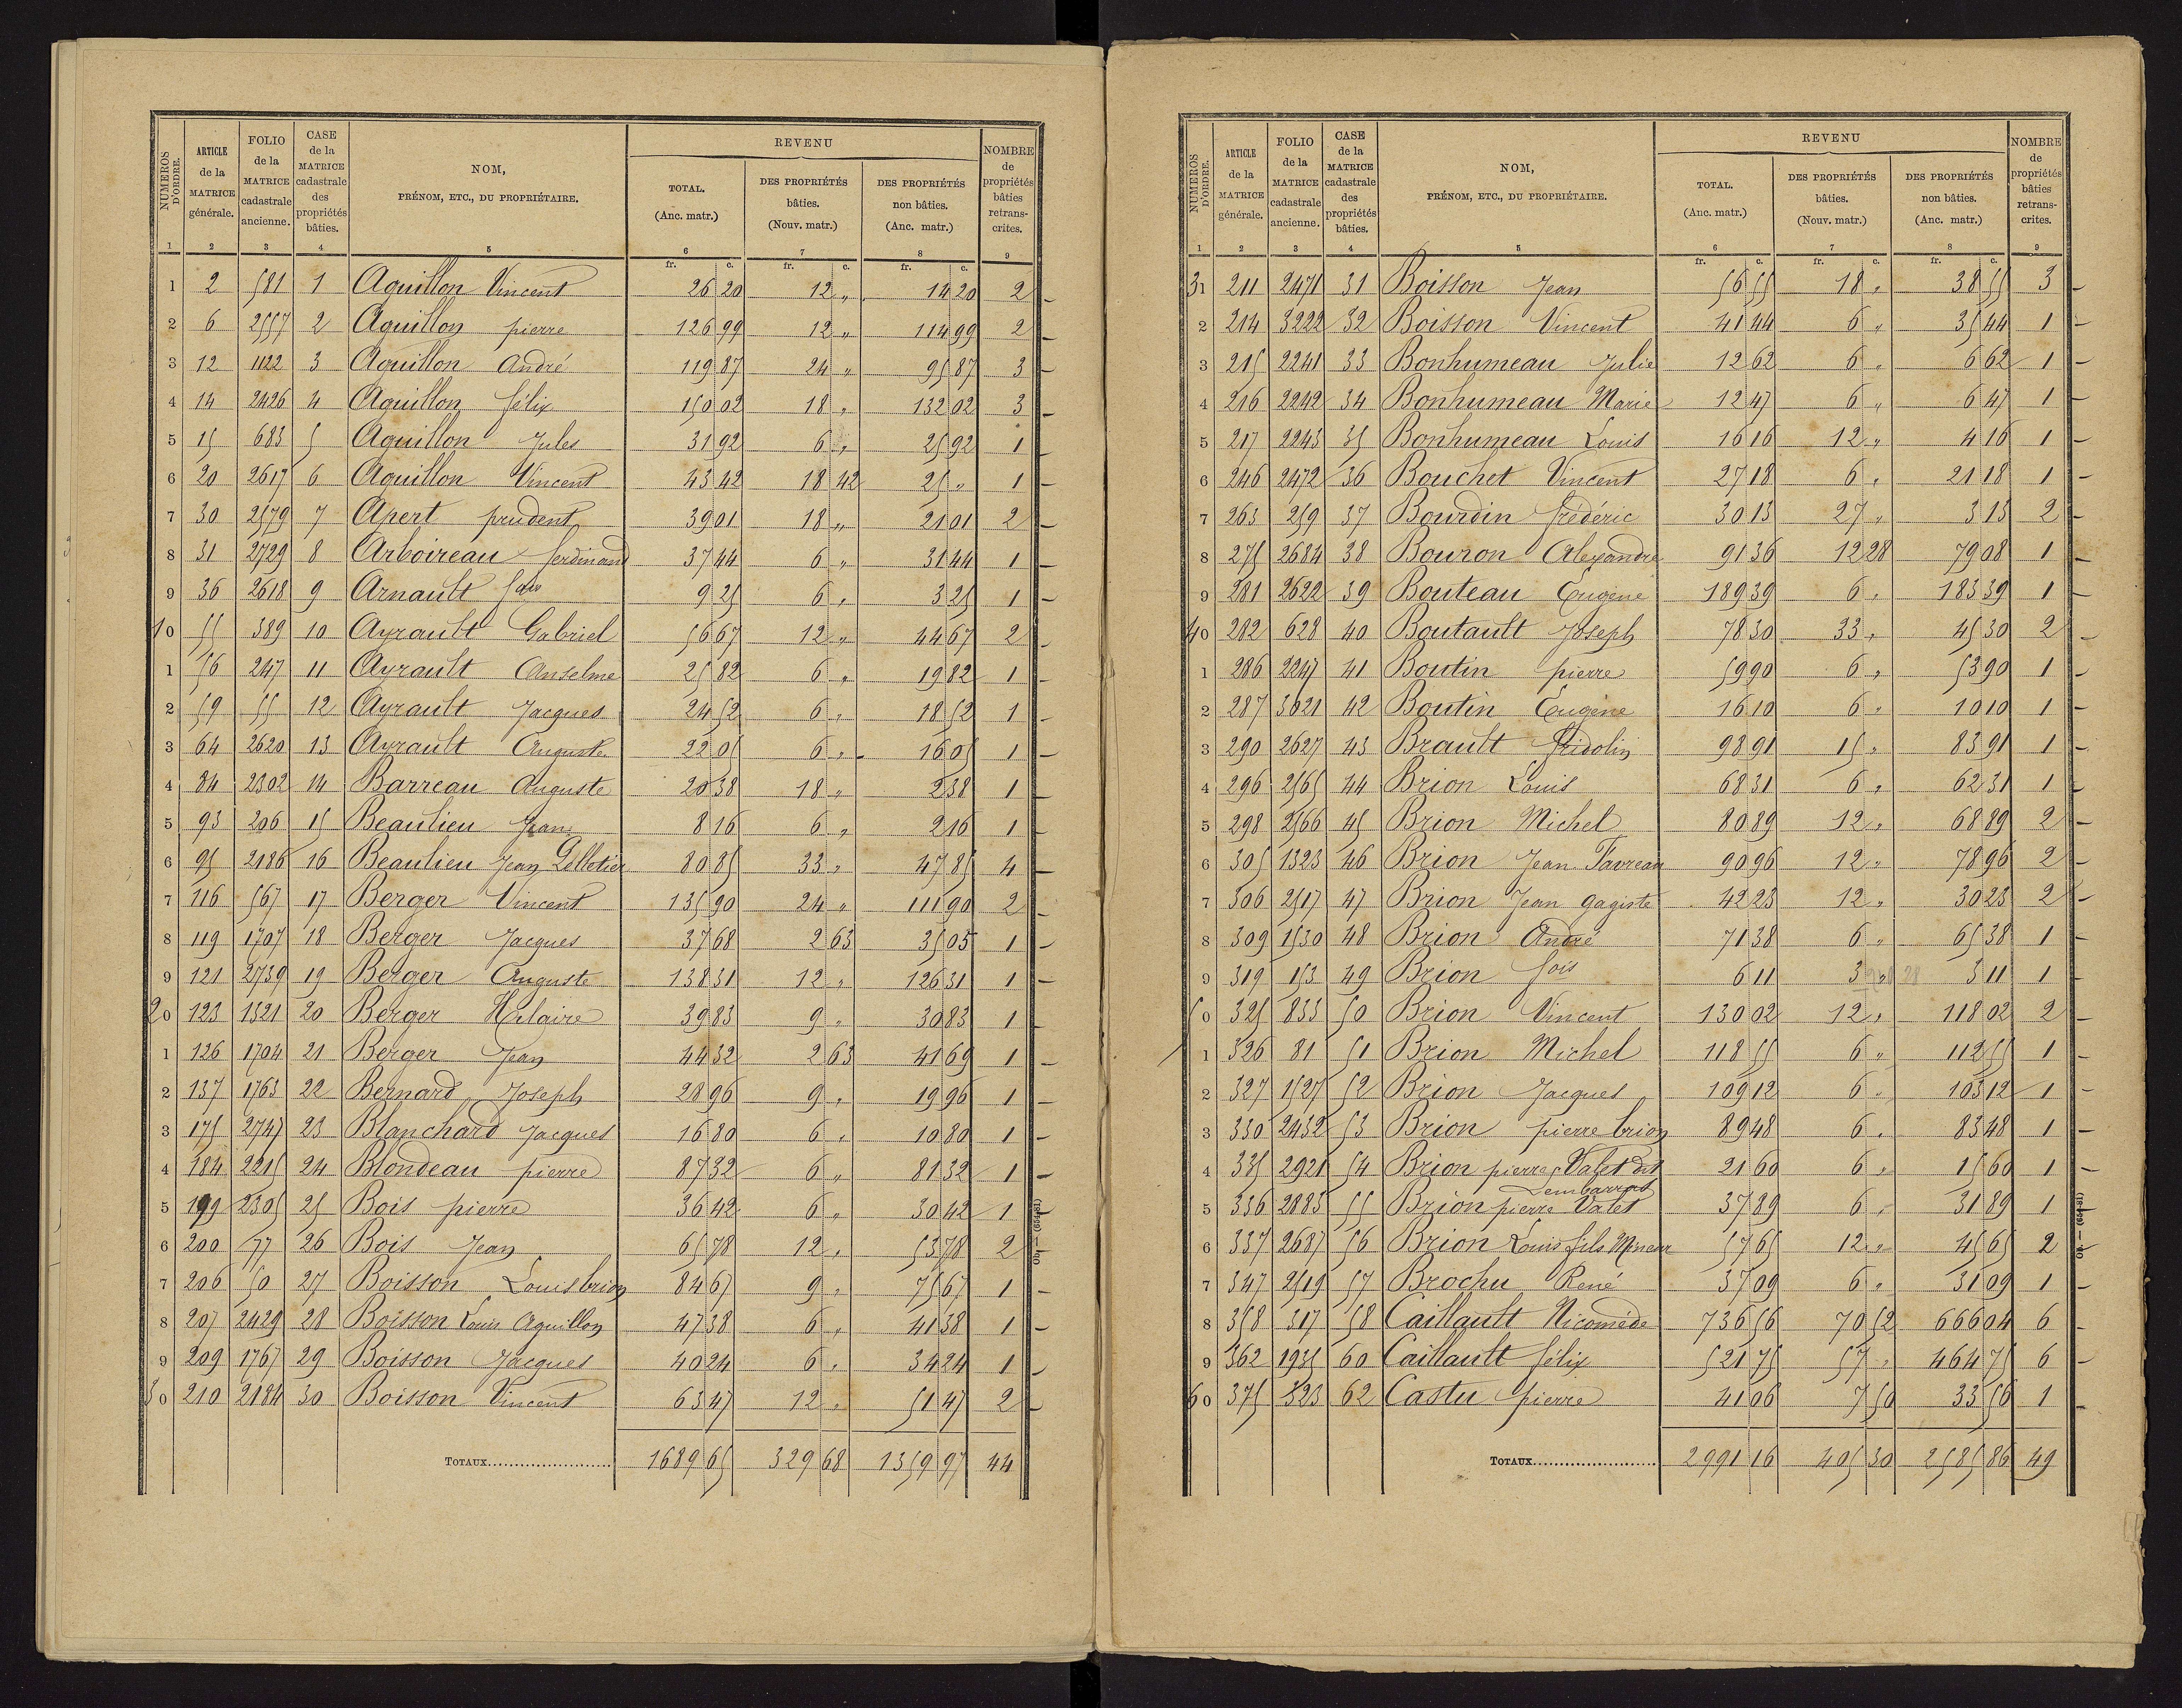 NUMEROS D'ORDRE. ARTICLE de la MATRICE générale. FOLIO de la MATRICE cadastrale ancienne. CASE de la MATRICE cadastrale des propriétés bâties. NOM, PRÉNOM, ETC., DU PROPRIÉTAIRE. REVENU TOTAL. (Anc. matr.) DES PROPRIÉTÉS bâties. (Nouv. matr.) DES PROPRIÉTÉS non bâties. (Anc. matr.) NOMBRE de propriétés bâties retrans-crites.
1 2 3 4 5 6 7 8 9
fr. c. fr. c. fr. c.
1 2 581 1 Aquillon Vincent 26 20 12 " 14 20 2 -
2 6 2557 2 Aquillon pierre 126 99 12 " 114 99 2 -
3 12 1122 3 Aquillon André 119 87 24 " 95 87 3 -
4 14 2426 4 Aquillon félix 150 02 18 " 132 02 3 -
5 15 683 5 Aquillon Jules 31 92 6 " 25 92 1 -
6 20 2617 6 Aquillon Vincent 43 42 18 42 25 " 1 -
7 30 2579 7 Apert prudent 39 01 18 " 21 01 2 -
8 31 2729 8 Arboireau ferdinand 37 44 6 " 31 44 1 -
9 36 2618 9 Arnault fois 9 25 6 " 3 25 1 -
10 55 389 10 Ayrault Gabriel 56 67 12 " 44 67 2 -
1 56 247 11 Ayrault Anselme 25 82 6 " 19 82 1 -
2 59 55 12 Ayrault Jacques 24 52 6 " 18 52 1 -
3 64 2620 13 Ayrault Auguste 22 05 6 " 16 05 1 -
4 84 2302 14 Barreau Auguste 20 38 18 " 2 38 1 -
5 93 206 15 Beaulieu Jean 8 16 6 " 2 16 1 -
6 95 2186 16 Beaulieu Jean Pelletier 80 85 33 " 47 85 4 -
7 116 567 17 Berger Vincent 135 90 24 " 111 90 2 -
8 119 1707 18 Berger Jacques 37 68 2 63 35 05 1 -
9 121 2739 19 Berger Auguste 138 31 12 " 126 31 1 -
20 123 1321 20 Berger Hilaire 39 83 9 " 30 83 1 -
1 126 1704 21 Berger Jean 44 32 2 63 41 69 1 -
2 137 1763 22 Bernard Joseph 28 96 9 " 19 96 1 -
3 175 2747 23 Blanchard Jacques 16 80 6 " 10 80 1 -
4 184 2215 24 Blondeau pierre 87 32 6 " 81 32 1 -
5 199 2305 25 Bois pierre 36 42 6 " 30 42 1 -
6 200 77 26 Bois Jean 65 78 12 " 53 78 2 -
7 206 50 27 Boisson Louis brion 84 67 9 " 75 67 1 -
8 207 2429 28 Boisson Louis Aquillon 47 38 6 " 41 38 1 -
9 209 1767 29 Boisson Jacques 40 24 6 " 34 24 1 -
30 210 2184 30 Boisson Vincent 63 47 12 " 51 47 2 -
TOTAUX 1689 65 329 68 1359 97 44
Ob. — (654-81)
NUMEROS D'ORDRE. ARTICLE de la MATRICE générale. FOLIO de la MATRICE cadastrale ancienne. CASE de la MATRICE cadastrale des propriétés bâties. NOM, PRÉNOM, ETC., DU PROPRIÉTAIRE. REVENU TOTAL. (Anc. matr.) DES PROPRIÉTÉS bâties. (Nouv. matr.) DES PROPRIÉTÉS non bâties. (Anc. matr.) NOMBRE de propriétés bâties retrans-crites.
1 2 3 4 5 6 7 8 9
fr. c. fr. c. fr. c.
31 211 2471 31 Boisson Jean 56 55 18 " 38 55 3 -
2 214 3222 32 Boisson Vincent 41 44 6 " 35 44 1 -
3 215 2241 33 Bonhumeau Julie 12 62 6 " 6 62 1 -
4 216 2242 34 Bonhumeau Marie 12 47 6 " 6 47 1 -
5 217 2243 35 Bonhumeau Louis 16 16 12 " 4 16 1 -
6 246 2472 36 Bouchet Vincent 27 18 6 " 21 18 1 -
7 263 259 37 Bourdin frédéric 30 13 27 " 3 13 2 -
8 275 2684 38 Bouron Alexandre 91 36 12 28 79 08 1 -
9 281 2622 39 Bouteau Eugène 189 39 6 " 183 39 1 -
40 282 628 40 Boutault Joseph 78 30 33 " 45 30 2 -
1 286 2247 41 Boutin pierre 59 90 6 " 53 90 1 -
2 287 3021 42 Boutin Eugène 16 10 6 " 10 10 1 -
3 290 2627 43 Brault fridolin 98 91 15 " 83 91 1 -
4 296 2565 44 Brion Louis 68 31 6 " 62 31 1 -
5 298 2566 45 Brion Michel 80 89 12 " 68 89 2 -
6 305 1323 46 Brion Jean Favreau 90 96 12 " 78 96 2 -
7 306 2517 47 Brion Jean gagiste 42 23 12 " 30 23 2 -
8 309 1530 48 Brion André 71 38 6 " 65 38 1 -
9 319 153 49 Brion fois 6 11 3 " 3 11 1 -
50 325 833 50 Brion Vincent 130 02 12 " 118 02 2 -
1 326 81 51 Brion Michel 118 55 6 " 112 55 1 -
2 327 1527 52 Brion Jacques 109 12 6 " 103 12 1 -
3 330 2432 53 Brion pierre brion 89 48 6 " 83 48 1 -
4 335 2921 54 Brion pierre Valet dit Lembarras 21 60 6 " 15 60 1 -
5 336 2883 55 Brion pierre Valet 37 89 6 " 31 89 1 -
6 337 2687 56 Brion Louis fils Mineur 57 65 12 " 45 65 2 -
7 347 2519 57 Brochu René 37 09 6 " 31 09 1 -
8 358 317 58 Caillault Nicomède 736 56 70 52 666 04 6 -
9 362 1935 60 Caillault félix 521 75 57 " 464 75 6 -
60 375 323 62 Castu pierre 41 06 7 50 33 56 1 -
TOTAUX 2991 16 405 30 2585 86 49
Ob. — (654-81)